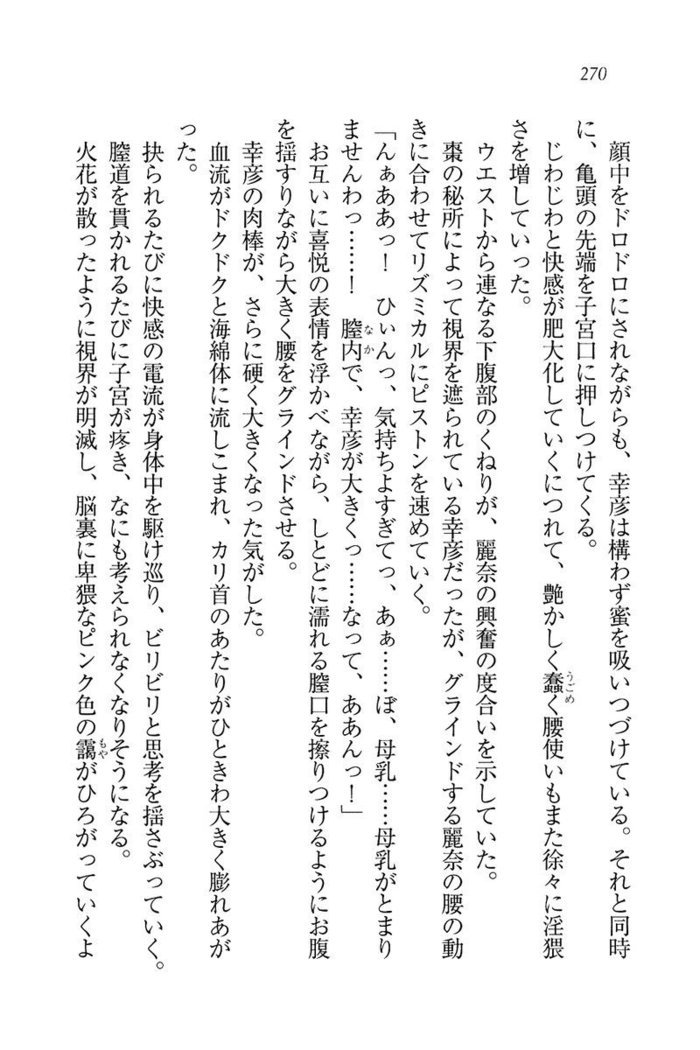 270
顔中をドロドロにされながらも、幸彦は構わず蜜を吸いつづけている。それと同時
に、亀頭の先端を子宮口に押しつけてくる。
じわじわと快感が肥大化していくにつれて、艶かしく蠢く腰使いもまた徐々に淫猥
さを増していった。
ウエストから連なる下腹部のくねりが、麗奈の興奮の度合いを示していた。
棗の秘所によって視界を遮られている幸彦だったが、グラインドする麗奈の腰の動
きに合わせてリズミカルにピストンを速めていく。
「んぁああっ！　ひぃんっ、気持ちよすぎてっ、あぁ……ぼ、母乳……母乳がとまり
ませんわっ……！　膣内で、幸彦が大きくっ……なって、ああんっ！」
お互いに喜悦の表情を浮かべながら、しとどに濡れる膣口を擦りつけるようにお腹
を揺すりながら大きく腰をグラインドさせる。
幸彦の肉棒が、さらに硬く大きくなった気がした。
血流がドクドクと海綿体に流しこまれ、カリ首のあたりがひときわ大きく膨れあが
った。
抉られるたびに快感の電流が身体中を駆け巡り、ビリビリと思考を揺さぶっていく。
膣道を貫かれるたびに子宮が疼き、なにも考えられなくなりそうになる。
火花が散ったように視界が明滅し、脳裏に卑猥なピンク色の靄がひろがっていくよ